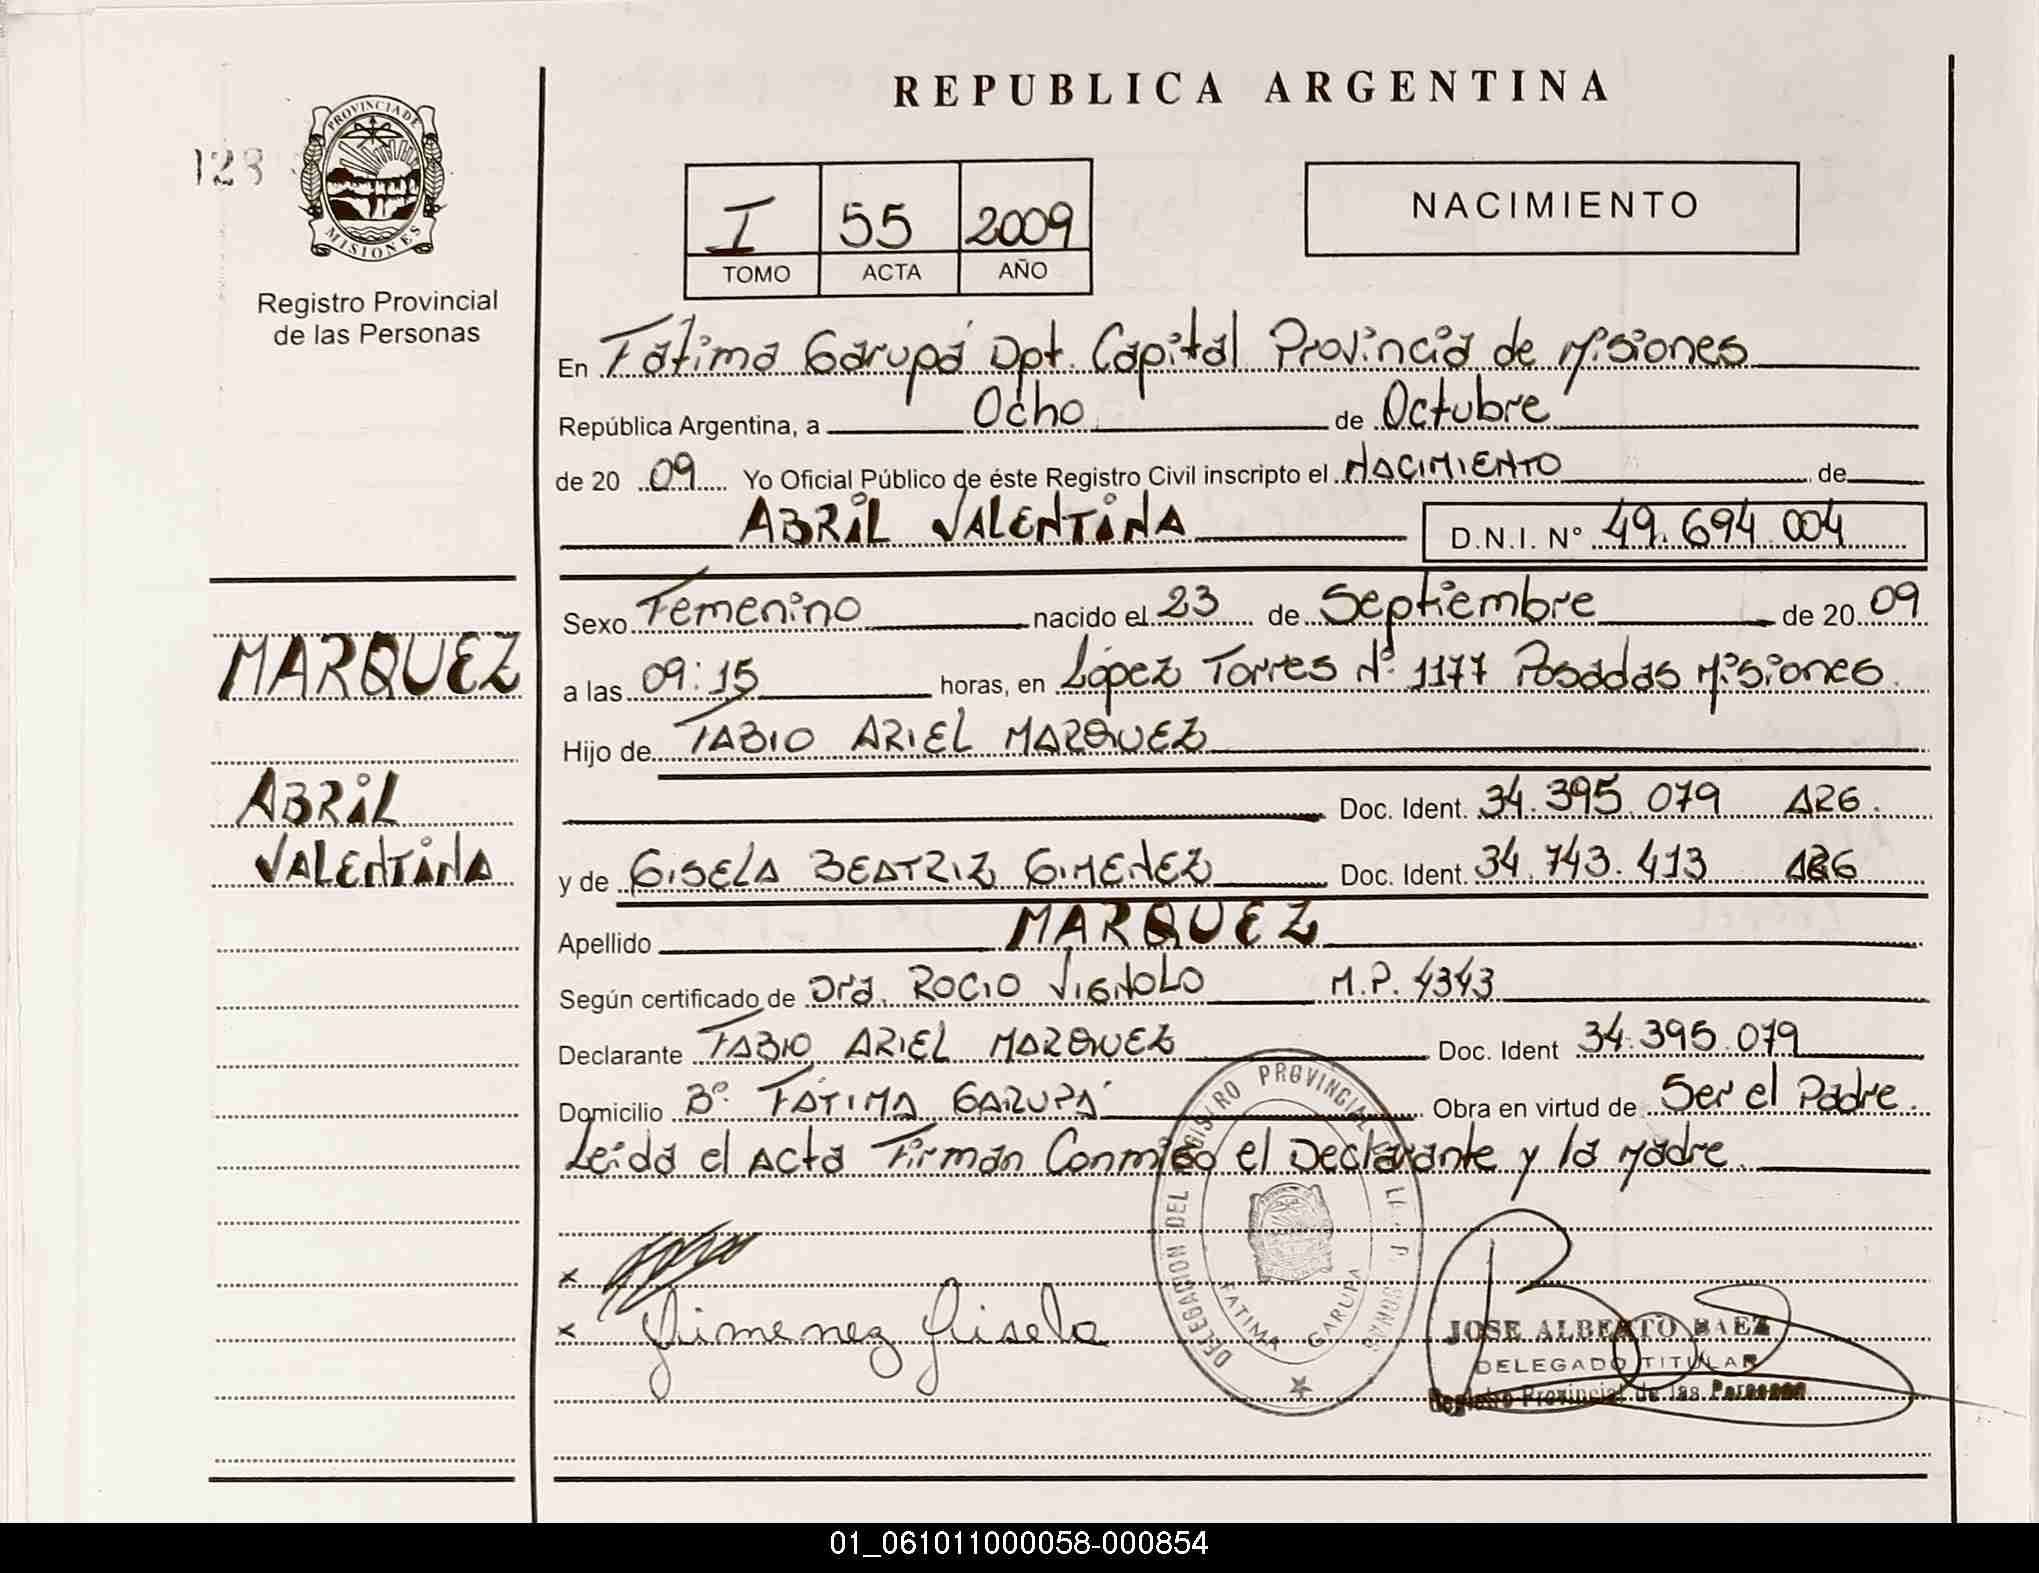 REPUBLICA ARGENTINA
128
PROVINCIA DE MISIONES
Registro Provincial
de las Personas
I 55 2009
TOMO ACTA AÑO
NACIMIENTO
En Fátima Garupá Dpt. Capital Provincia de Misiones
República Argentina, a Ocho de Octubre
de 20 09 Yo Oficial Público de éste Registro Civil inscripto el NACIMIENTO de
ABRIL VALENTINA D.N.I. N° 49.694.004
Sexo Femenino nacido el 23 de Septiembre de 20 09
a las 09:15 horas, en López Torres N° 1177 Posadas Misiones
Hijo de FABIO ARIEL MARQUEZ
Doc. Ident. 34.395.079 ARG.
y de GISELA BEATRIZ GIMENEZ Doc. Ident. 34.743.413 ARG
Apellido MARQUEZ
Según certificado de Dra. ROCIO VIGNOLO M.P. 4343
Declarante FABIO ARIEL MARQUEZ Doc. Ident 34.395.079
Domicilio B° FÁTIMA GARUPÁ Obra en virtud de Ser el Padre.
Leida el Acta Firman Conmigo el Declarante y la Madre.
MARQUEZ
ABRIL
VALENTINA
x
x Gimenez Gisela
DELEGACION DEL REGISTRO PROVINCIAL
FATIMA GARUPA
JOSE ALBERTO BAEZ
DELEGADO TITULAR
Registro Provincial de las Personas
01_061011000058-000854